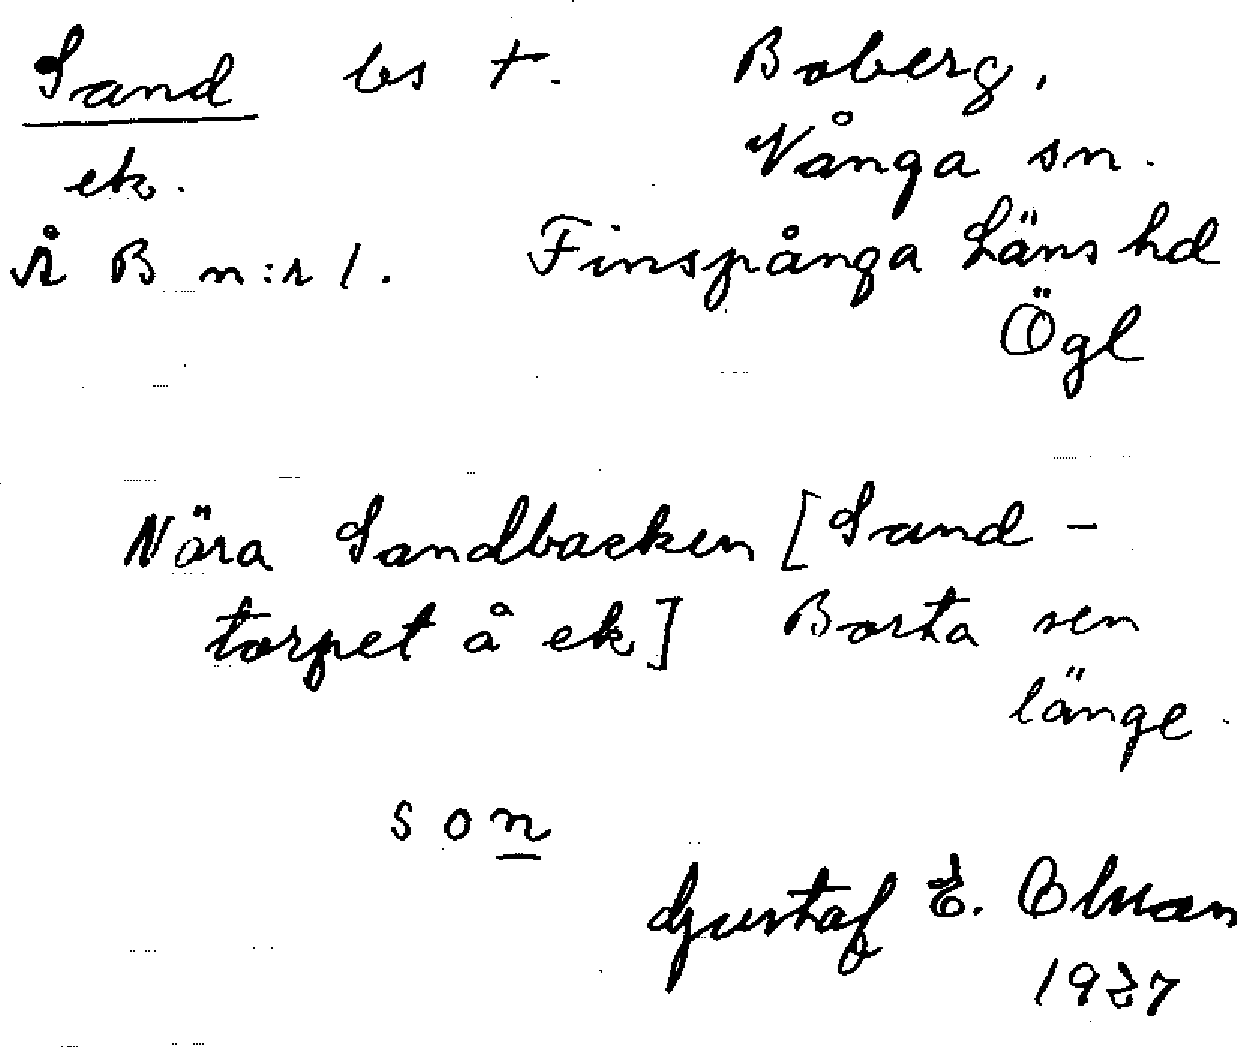 Sand bs t. Boberg.
ek. Vånga sn.
Å B n:r 1. Finspånga Läns hd
Ögl
Nära Sandbacken [Sand-
torpet å ek] Borta sen
länge.
s o n
Gustaf E. Olsson
1937